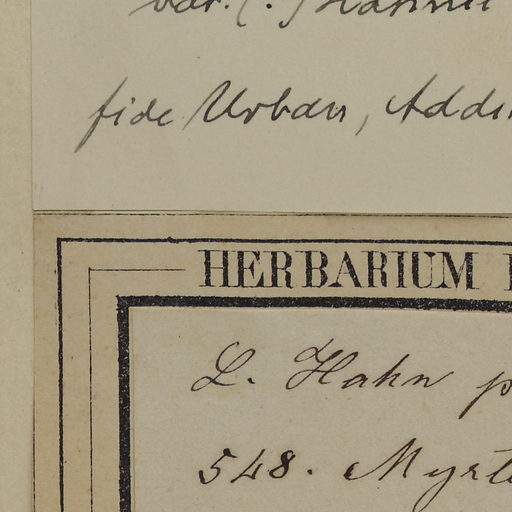 var. (?) Hahnii
fide Urban, Addi
HERBARIUM
L. Hahn p
548. Myrt